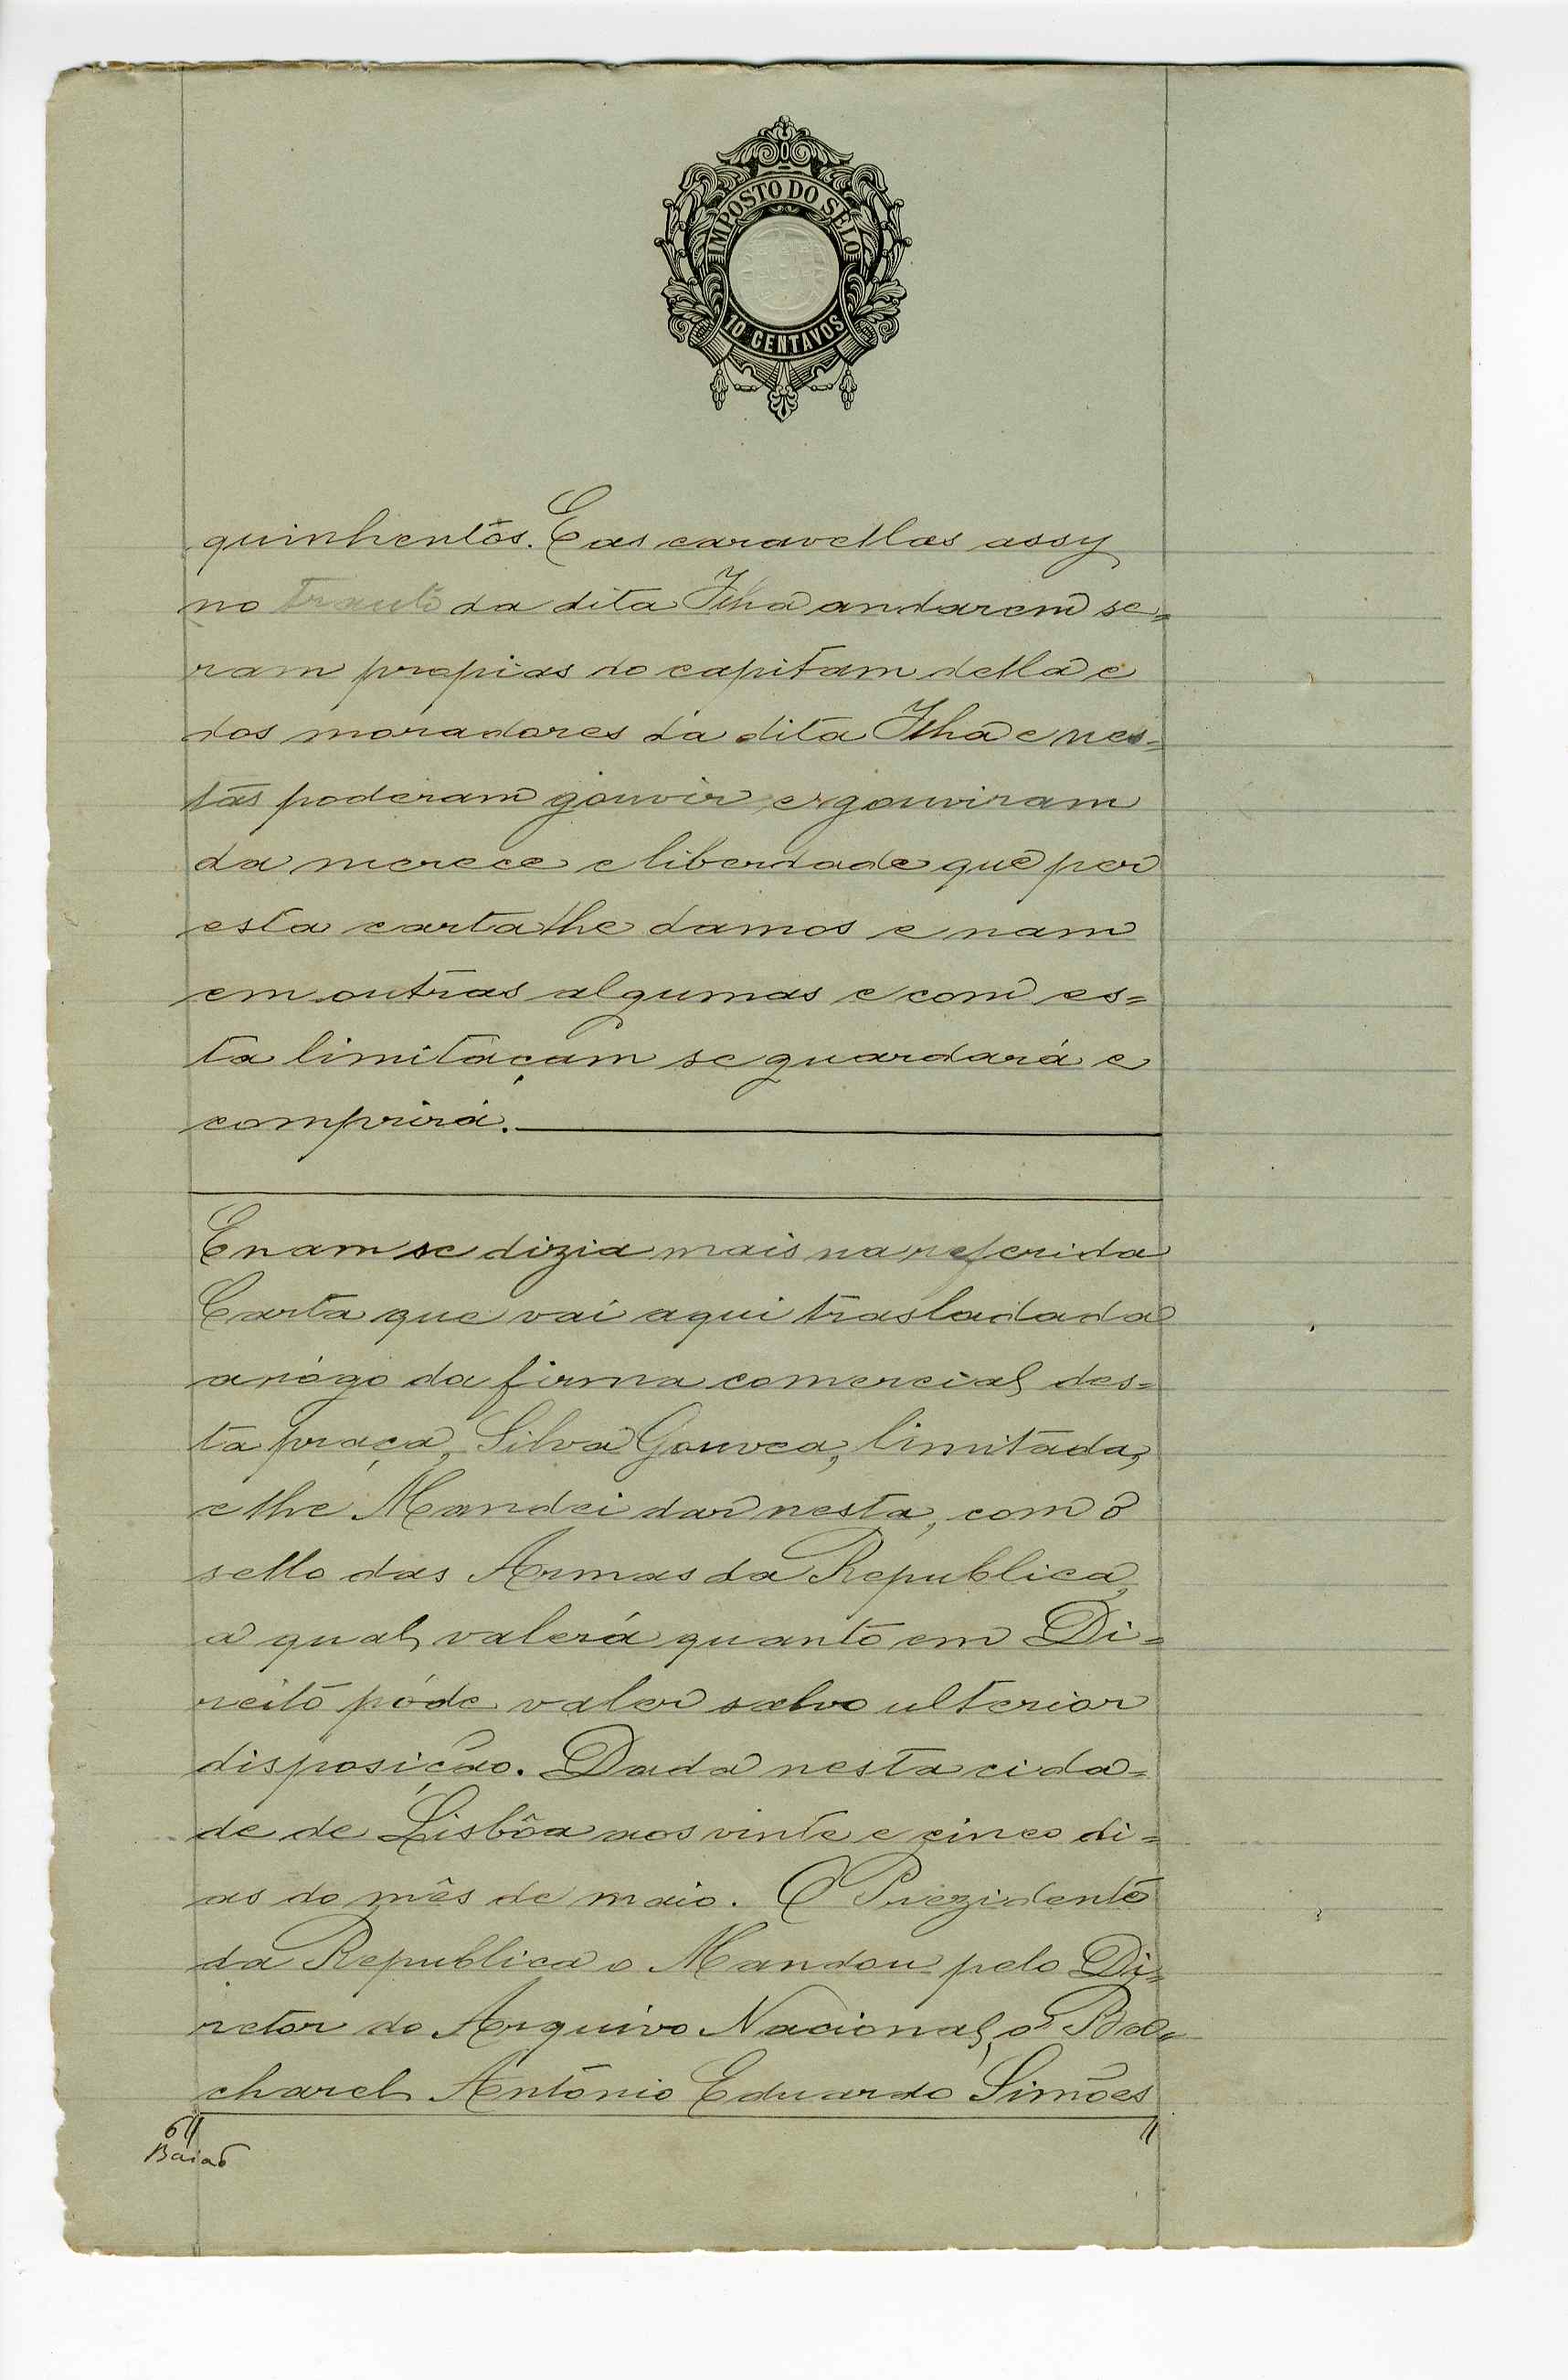 IMPOSTO DO SÊLO
10 CENTAVOS
quinhentos. E as caravellas assy
no trauto da dita Ilha andarem se=
ram propias do capitam della e
dos moradores da dita Ilha e nes=
tas poderam gouvir e gouviram
da merece e liberdade que per
esta carta lhe damos e nam
em outras algumas e com es=
ta limitaçam se guardará e
comprirá.
E nam se dizia mais na referida
Carta que vai aqui trasladada
a rógo da firma comercial des=
ta praça, Silva Gouvea, limitada,
e lhe Mandei dar nesta, com o
sello das Armas da Republica,
a qual valerá quanto em Di=
reito póde valer salvo ulterior
disposição. Dada nesta cida=
de de Lisbôa aos vinte e cinco di=
as do mês de maio. O Prezidente
da Republica o Mandou pelo Di=
retor do Arquivo Nacional, o Ba=
charel António Eduardo Simões
Baião